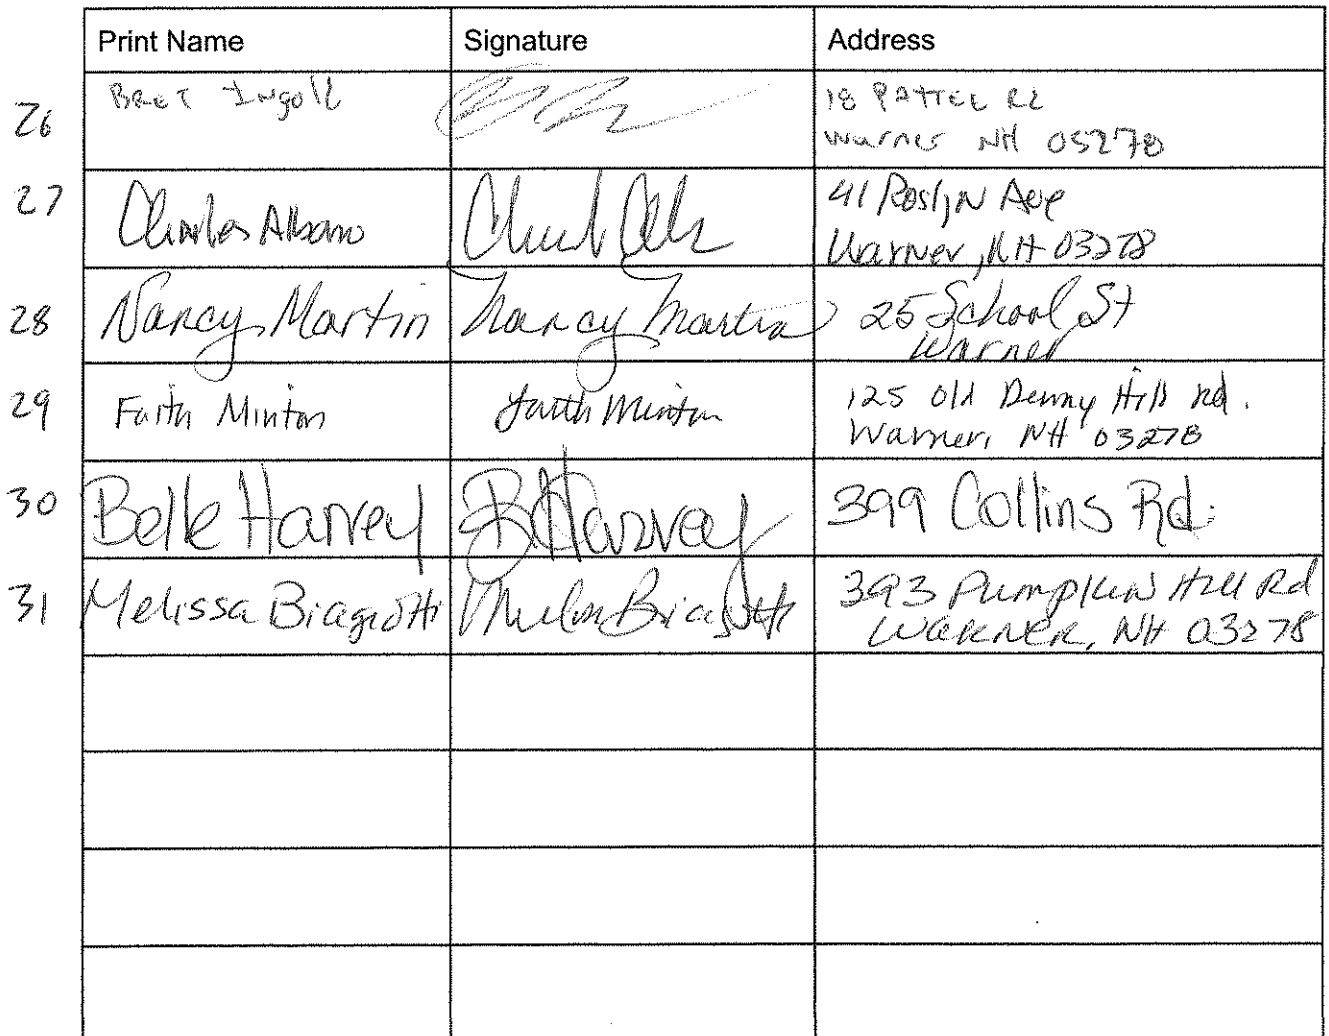 Print Name Signature Address
26 BRET Ingoll 18 PATTEE Rd
Warner NH 03278
27 Charles Albano Chuck 41 Roslyn Ave
Warner, NH 03278
28 Nancy Martin Nancy Martin 25 School St
Warner
29 Faith Minton Faith Minton 125 Old Denny Hill Rd.
Warner, NH 03278
30 Belle Harvey B Harvey 399 Collins Rd.
31 Melissa Biagiotti Biagiotti 393 Pumpkin Hill Rd
WARNER, NH 03278